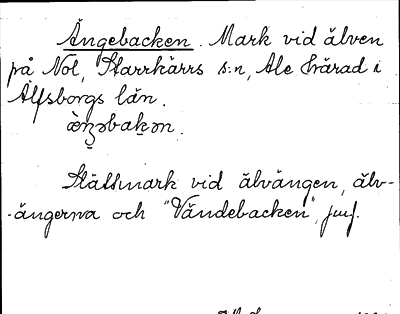 Ängebacken. Mark vid älven
på Nol, Starrkärrs s:n, Ale härad i
Älfsborgs län.
Slättmark vid älvängen, älv-
-ängerna och "Vändebacken", jmf.